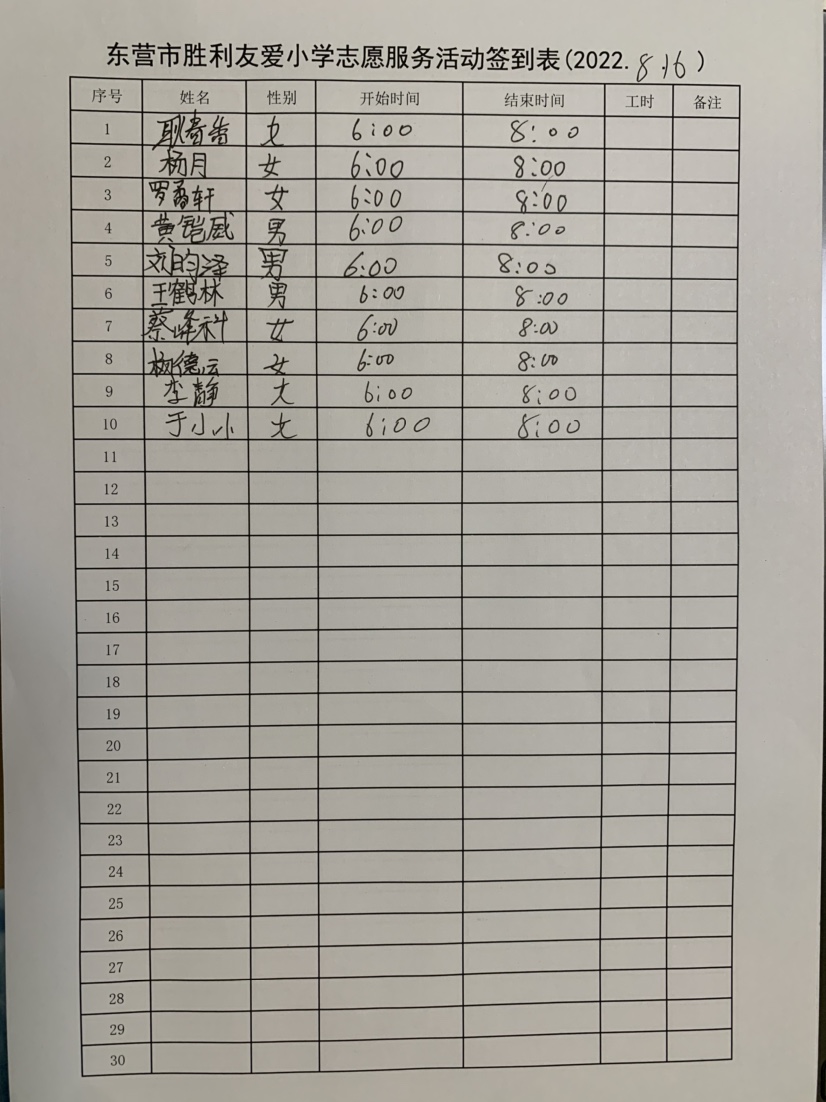 东营市胜利友爱小学志愿服务活动签到表(2022.8.16)
序号 姓名 性别 开始时间 结束时间 工时 备注
1 耿春 女 6:00 8:00
2 杨月 女 6:00 8:00
3 罗 轩 女 6:00 8:00
4 黄铠威 男 6:00 8:00
5 刘昀泽 男 6:00 8:00
6 王鹤林 男 6:00 8:00
7 蔡峰 女 6:00 8:00
8 杨德云 女 6:00 8:00
9 李静 女 6:00 8:00
10 于小小 女 6:00 8:00
11
12
13
14
15
16
17
18
19
20
21
22
23
24
25
26
27
28
29
30